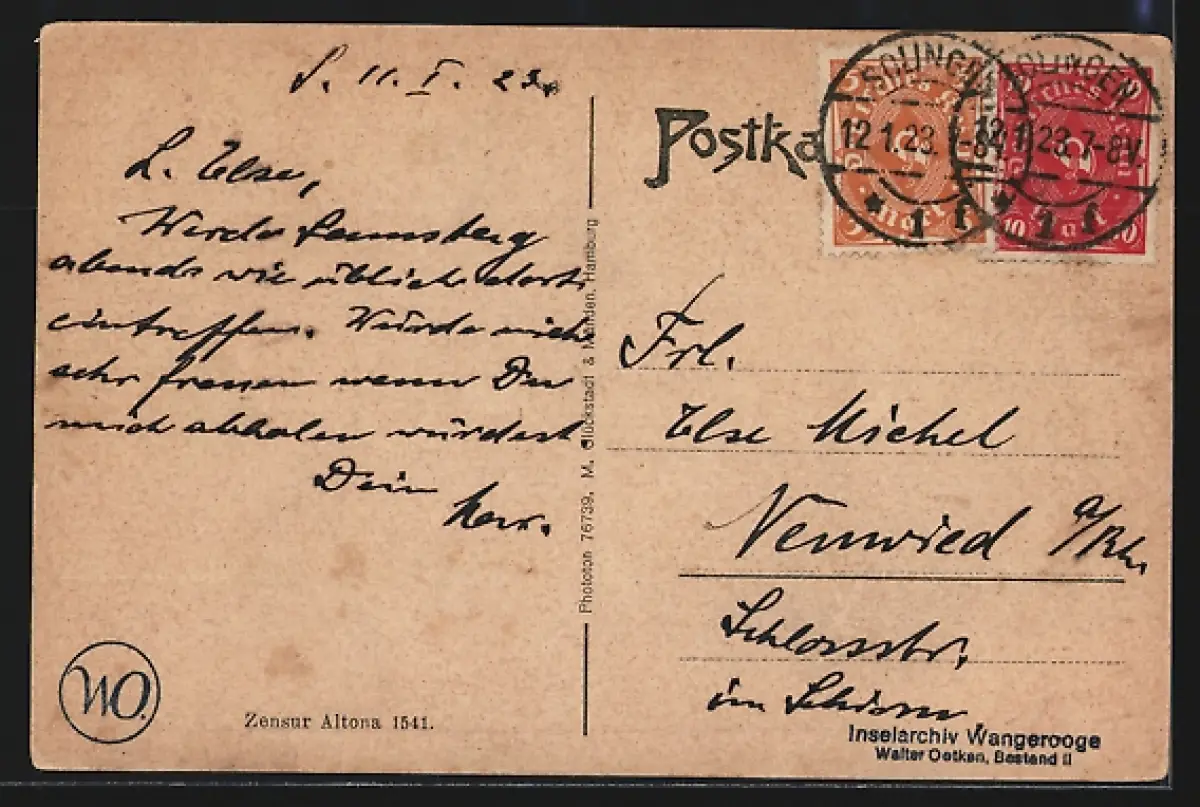 S. 11. I. 23.
L. Else,
Werde Samsberg
abends wie üblich dort
eintreffen. Würde mich
sehr freuen wenn Du
mich abholen würdest
Dein
WO.
Zensur Altona 1541.
Phototon 76739. M. Glückstadt & Münden. Hamburg
Postka
SOLINGEN
12 1.23.
* 1 f
SOLINGEN
12 1 23.7-8V.
* 1 f
10
Frl.
Else Michel
Neuwied a/Rh.
Schlossstr.
im
Inselarchiv Wangerooge
Walter Oetken, Bestand II